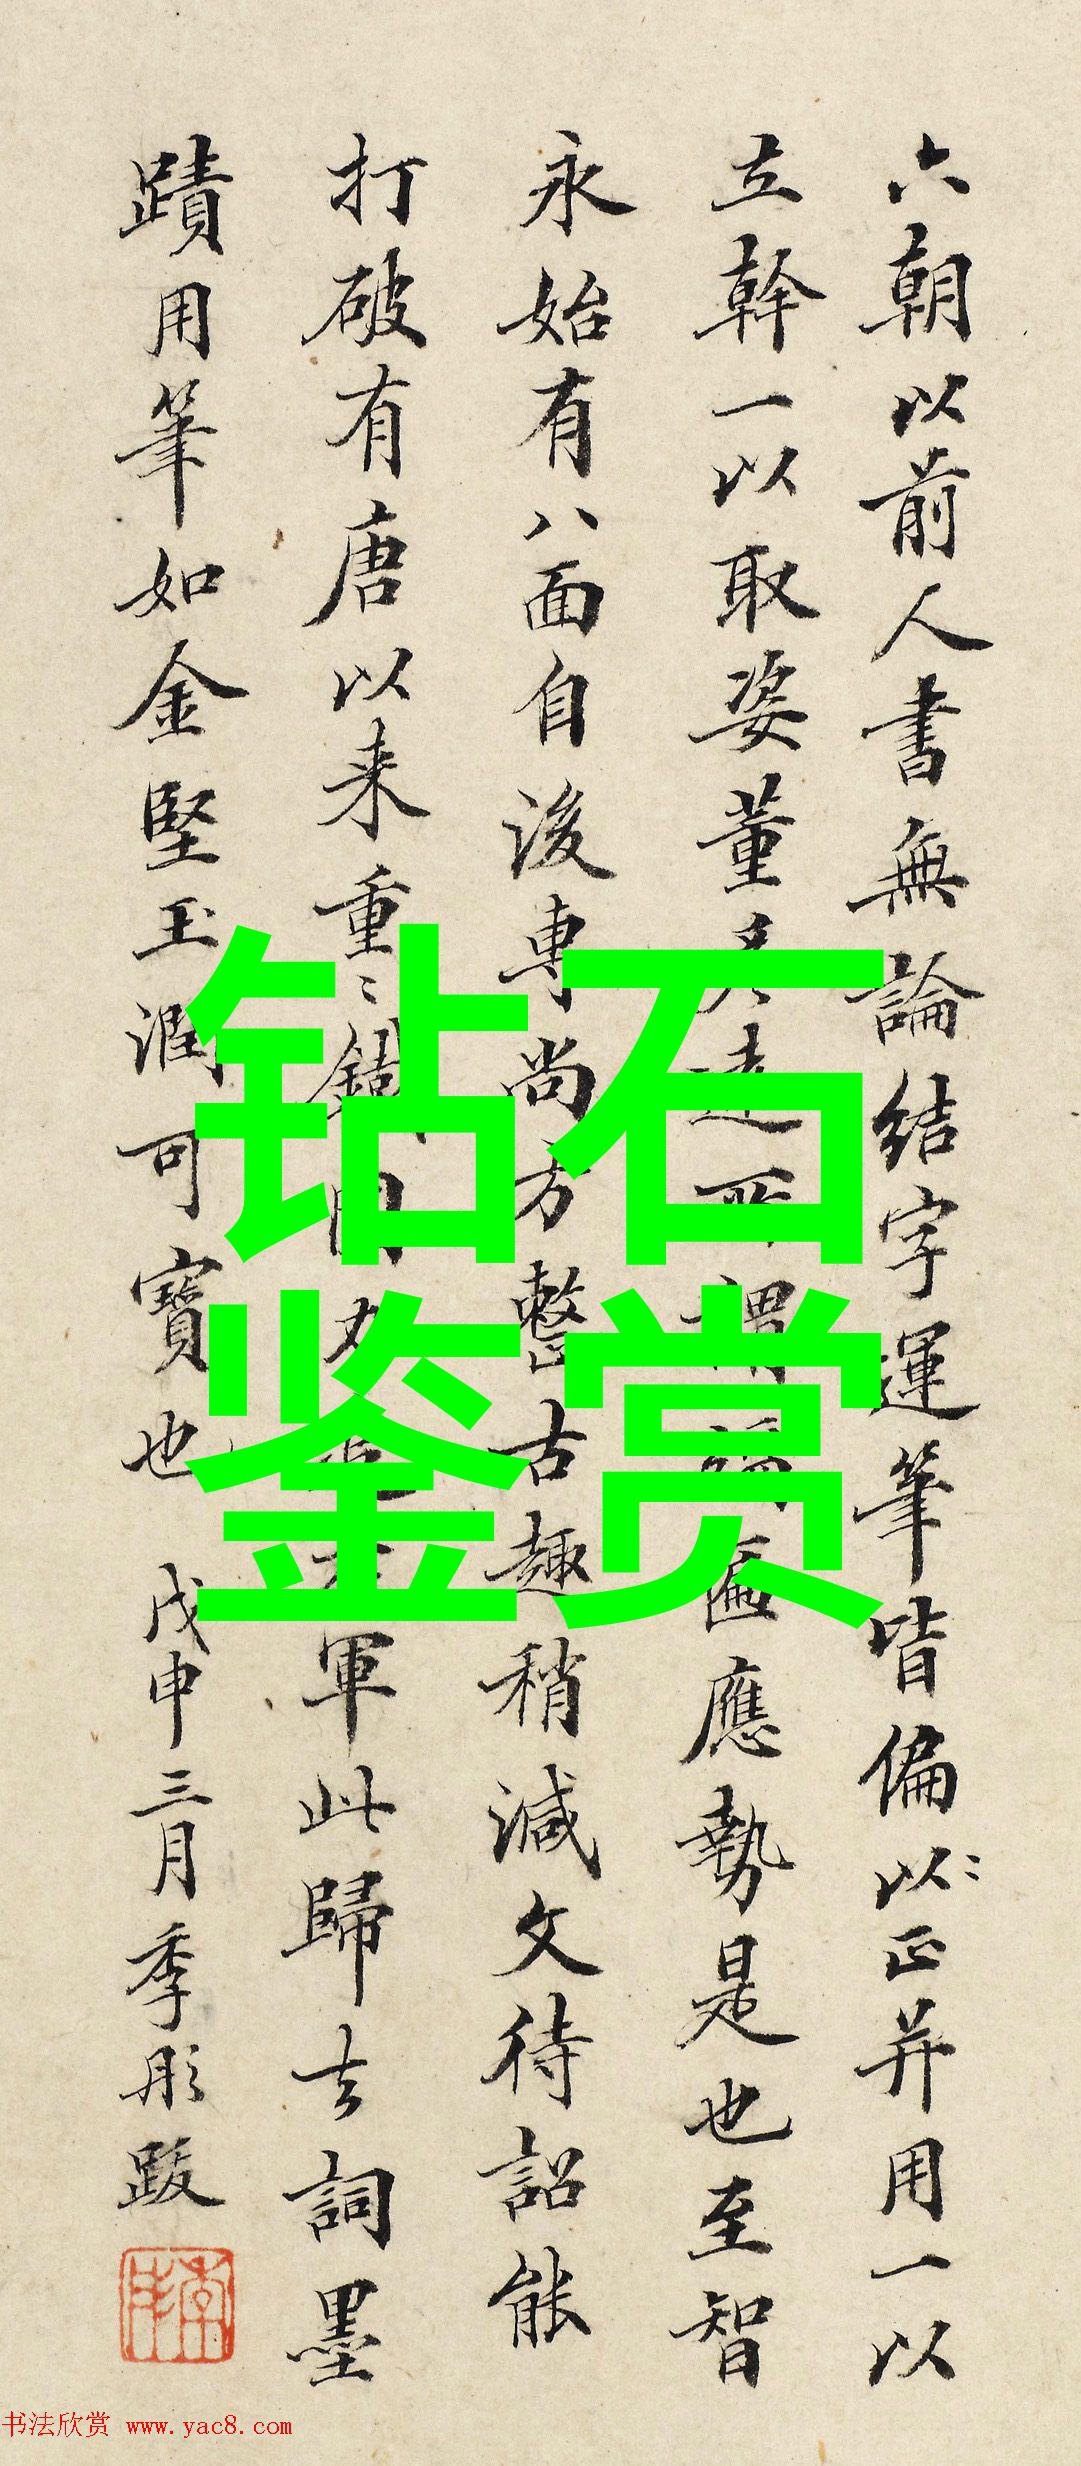 六朝以前人書無論結字運筆皆偏以〻正并用一以
立幹一以取姿董 遠 應勢是也至智
永始有八面自後專尚方整古趣稍減文待詔能
打破有唐以来重〻 軍此歸去詞墨
蹟用筆如金堅玉潤可寶也 戊申三月季彤跋
钻石
鉴赏
书法欣赏 www.yac8.com